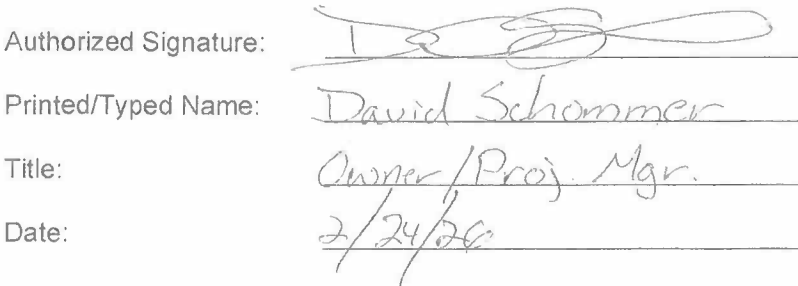 Authorized Signature:
Printed/Typed Name: David Schommer
Title: Owner/Proj. Mgr.
Date: 2/24/26